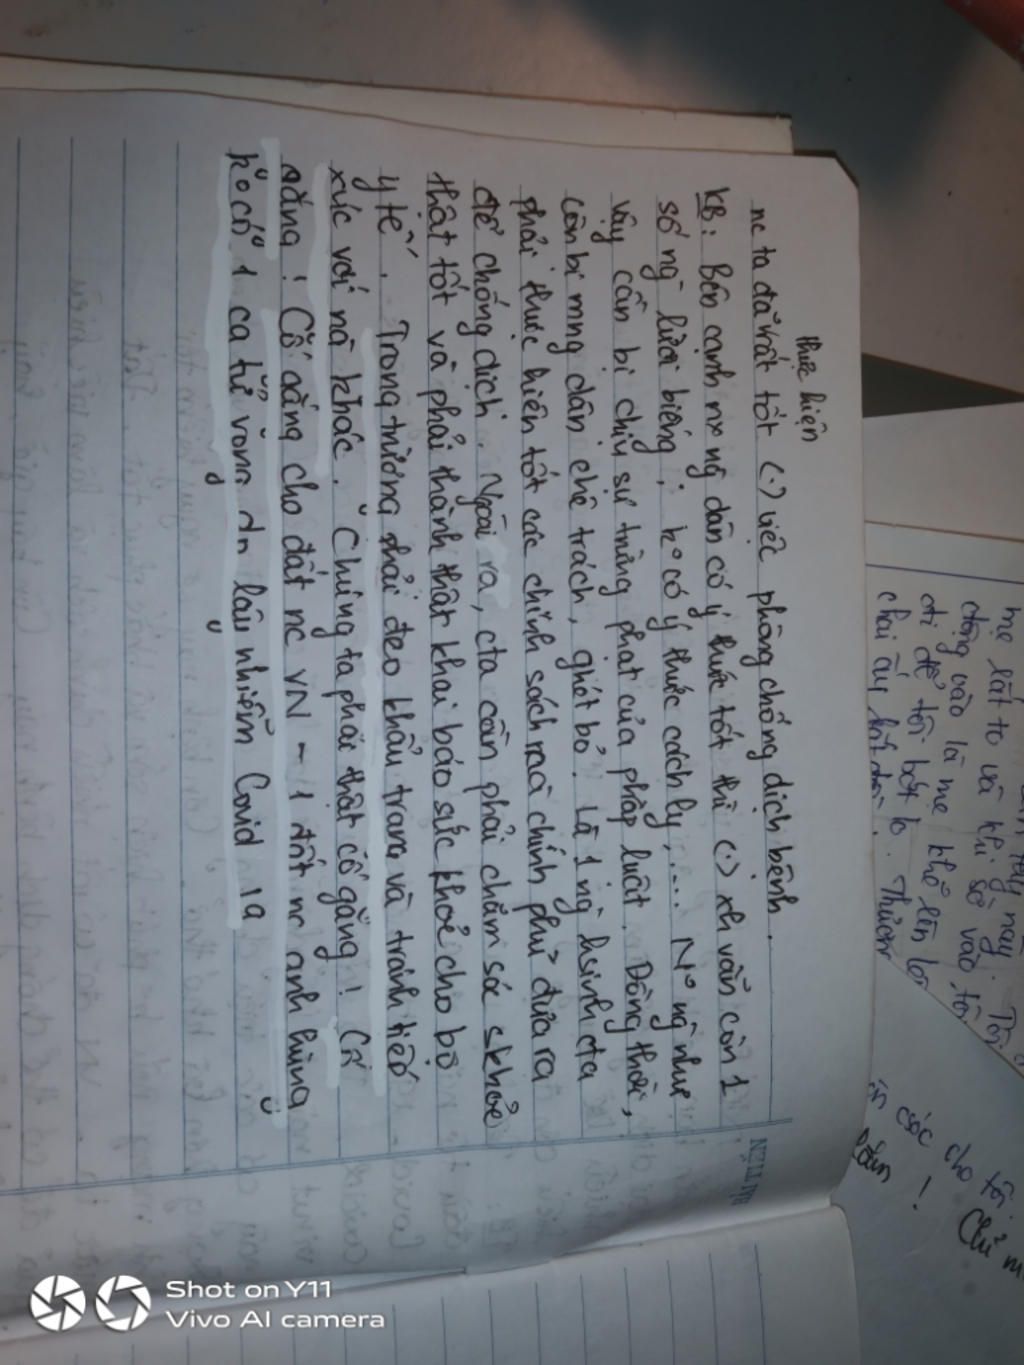 thực hiện
nc ta đã rất tốt (.) việc phòng chống dịch bệnh.
KB: Bên cạnh nx ng dân có ý thức tốt thì (.) xh vẫn còn 1
số ng lười biếng, ko có ý thức cách ly,... N° ng như
vậy cần bị chịu sự trừng phạt của pháp luật. Đồng thời,
còn bị mng dân chê trách, ghét bỏ. Là 1 ng hsinh cta
phải thực hiện tốt các chính sách mà chính phủ đưa ra
để chống dịch. Ngoài ra, cta cần phải chăm sóc skhoẻ
thật tốt và phải thành thật khai báo sức khoẻ cho bộ
y tế. Trong trường phải đeo khẩu trang và tránh tiếp
xúc với ng khác. Chúng ta phải thật cố gắng! Cố
gắng! Cố gắng cho đất nc VN - 1 đất nc anh hùng
ko có 1 ca tử vong do lây nhiễm Covid 19
mẹ lất to và khi sờ vào tôi
động vào là mẹ khổ lên
đi để tôi bớt lo.
chai ấy
csóc cho tôi.
!
Chỉ
Shot on Y11
Vivo AI camera